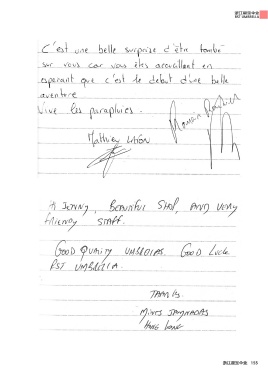 浙江新亚伞业
RST UMBRELLA
C'est une belle surprise d'être tombé
sur vous car vous êtes accueillant en
esperant que c'est le debut d'une belle
aventure
Vive les parapluies.
Matthieu
Hi JENNY, BEAUTIFUL SHOP, AND VERY
friendly STAFF.
GOOD QUALITY UMBRELLAS. GOOD LUCK
RST UMBRELLA.
THANKS.
HONG KONG
浙江新亚伞业 135